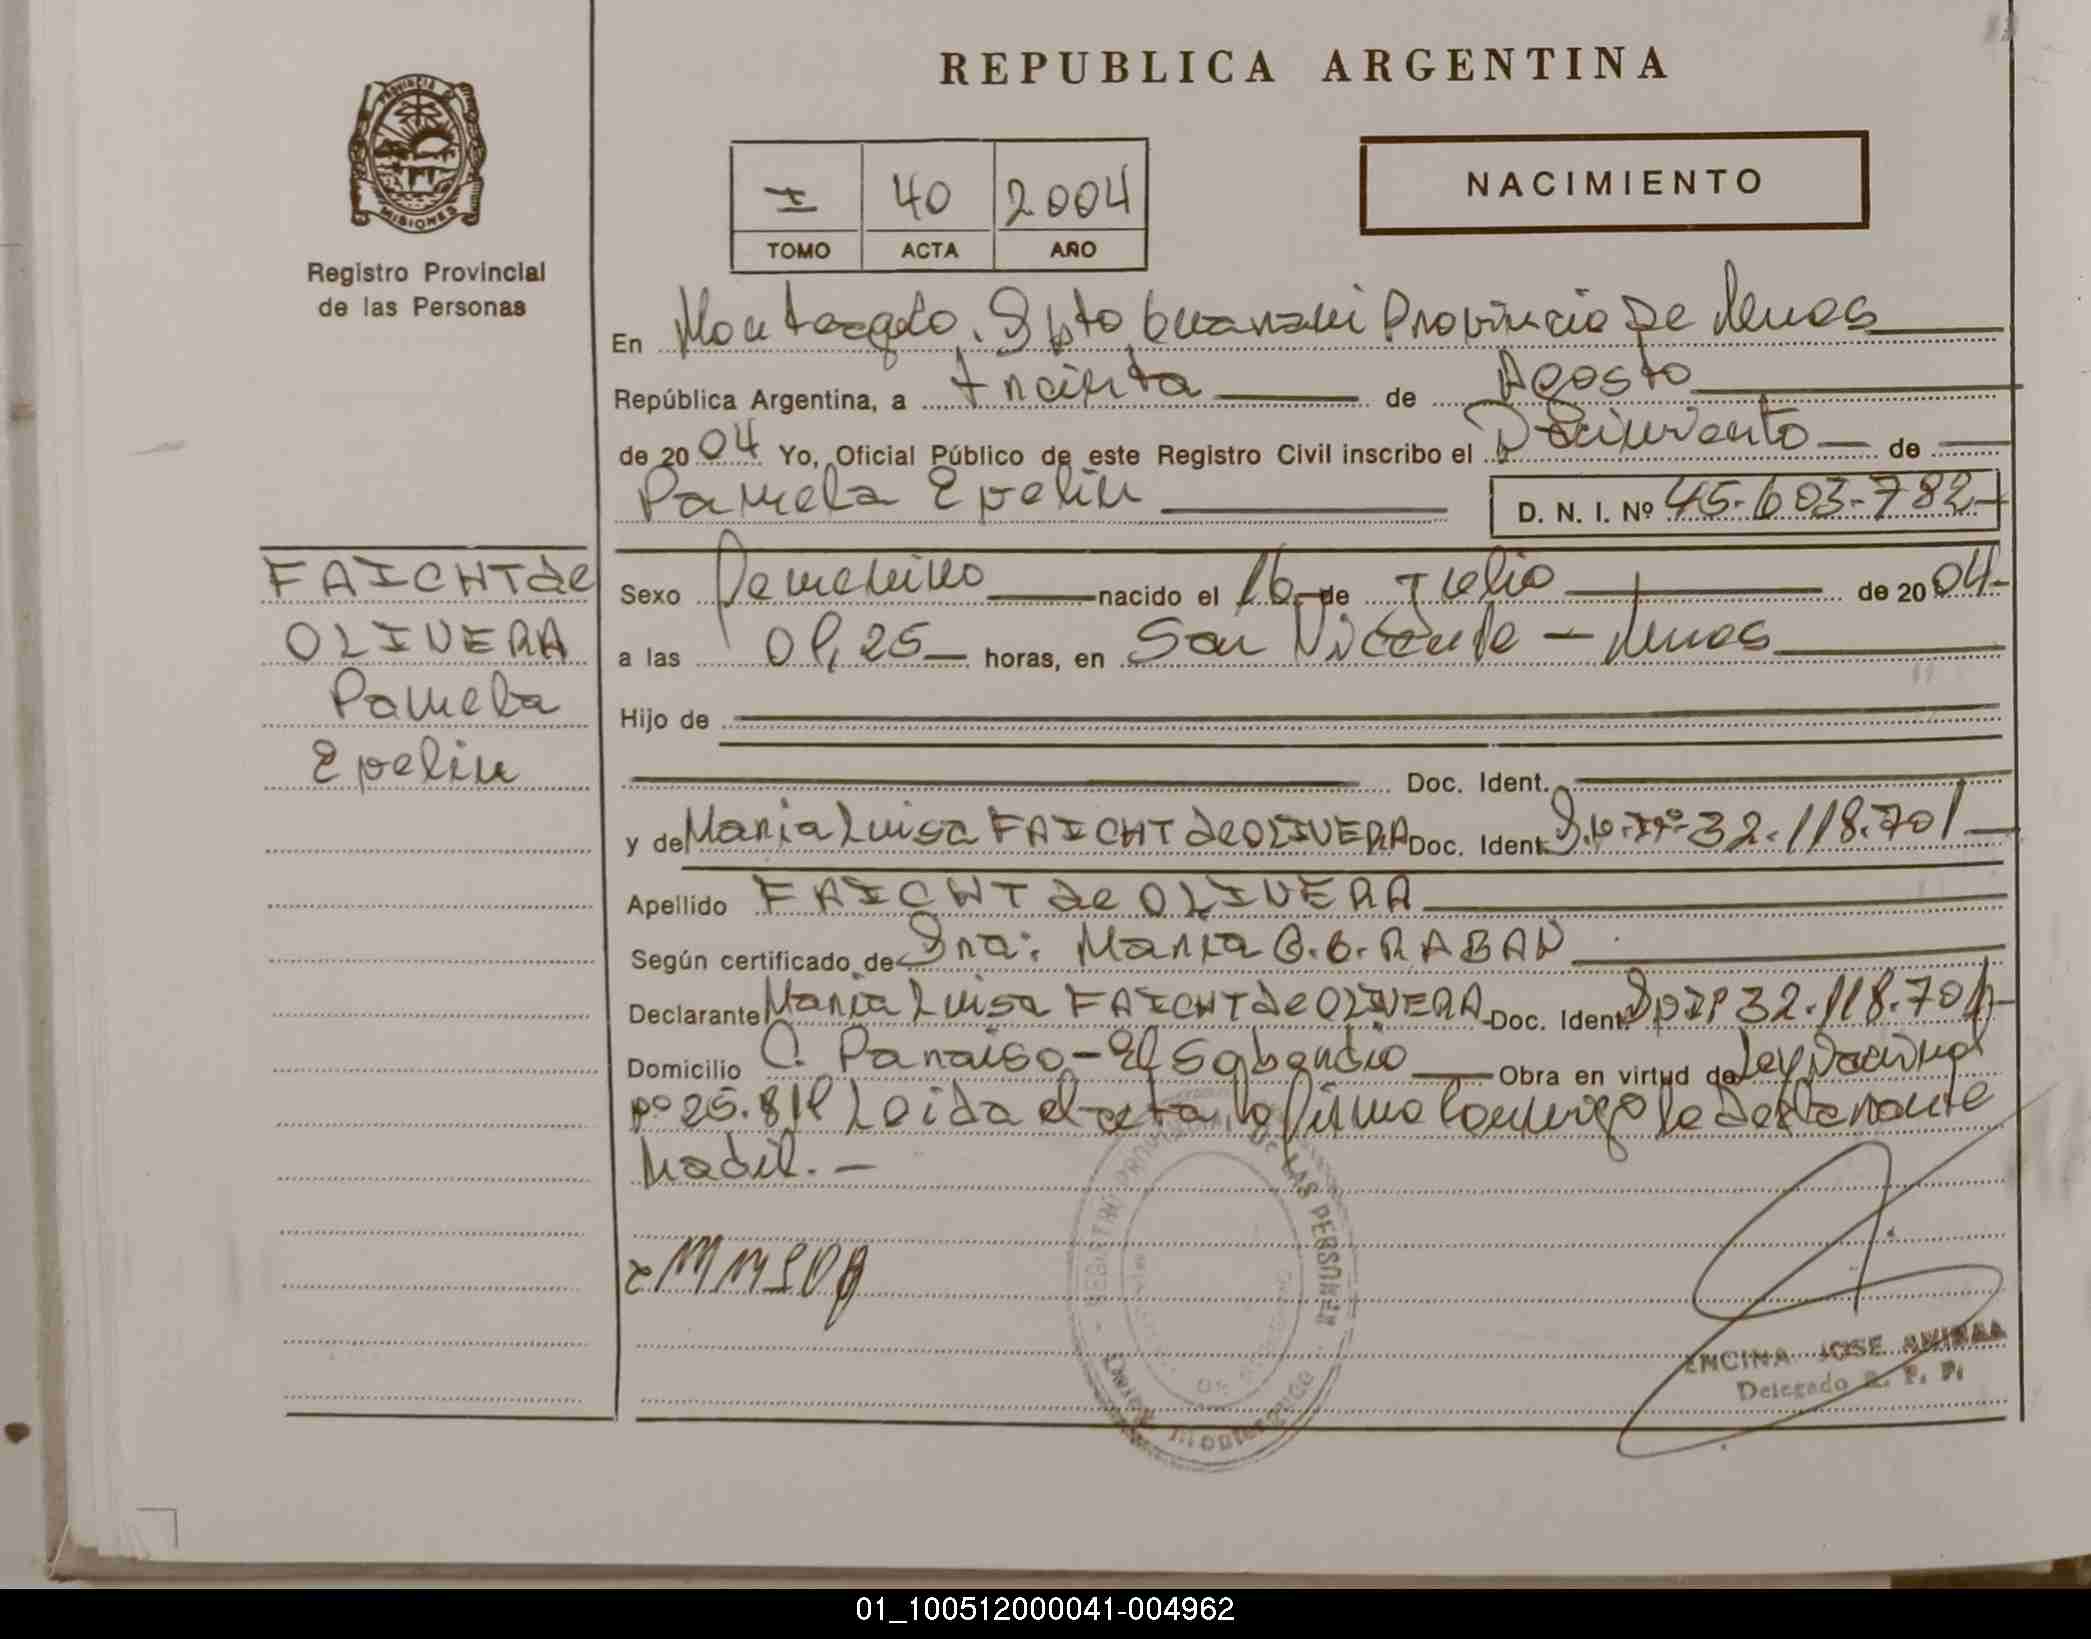 REPUBLICA ARGENTINA
PROVINCIA DE
MISIONES
Registro Provincial
de las Personas
I 40 2004
TOMO ACTA AÑO
NACIMIENTO
En Monteagudo, Dpto Guarani Provincia De Mnes
República Argentina, a treinta de Agosto
de 2004 Yo, Oficial Público de este Registro Civil inscribo el Nacimiento de
Pamela Evelin D. N. I. Nº 45.603.782
FAICHT de
OLIVERA
Pamela
Evelin
Sexo Femenino nacido el 16 de Julio de 2004
a las 01,25 horas, en San Vicente - Mnes
Hijo de
Doc. Ident.
y de Maria Luisa FAICHT de OLIVERA Doc. Ident. D.N.Iº 32.118.701
Apellido FAICHT de OLIVERA
Según certificado de Sra: Maria G. G. RABAN
Declarante Maria Luisa FAICHT de OLIVERA Doc. Ident. DNIº 32.118.701
Domicilio C. Paraiso - El Soberbio Obra en virtud de Ley Nacional
Nº 25.819 Leida el acta, la firma conmigo la declarante
REGISTRO PROVINCIAL DE LAS PERSONAS
Monteagudo
ENCINA JOSE
Delegado R. P. P.
01_100512000041-004962